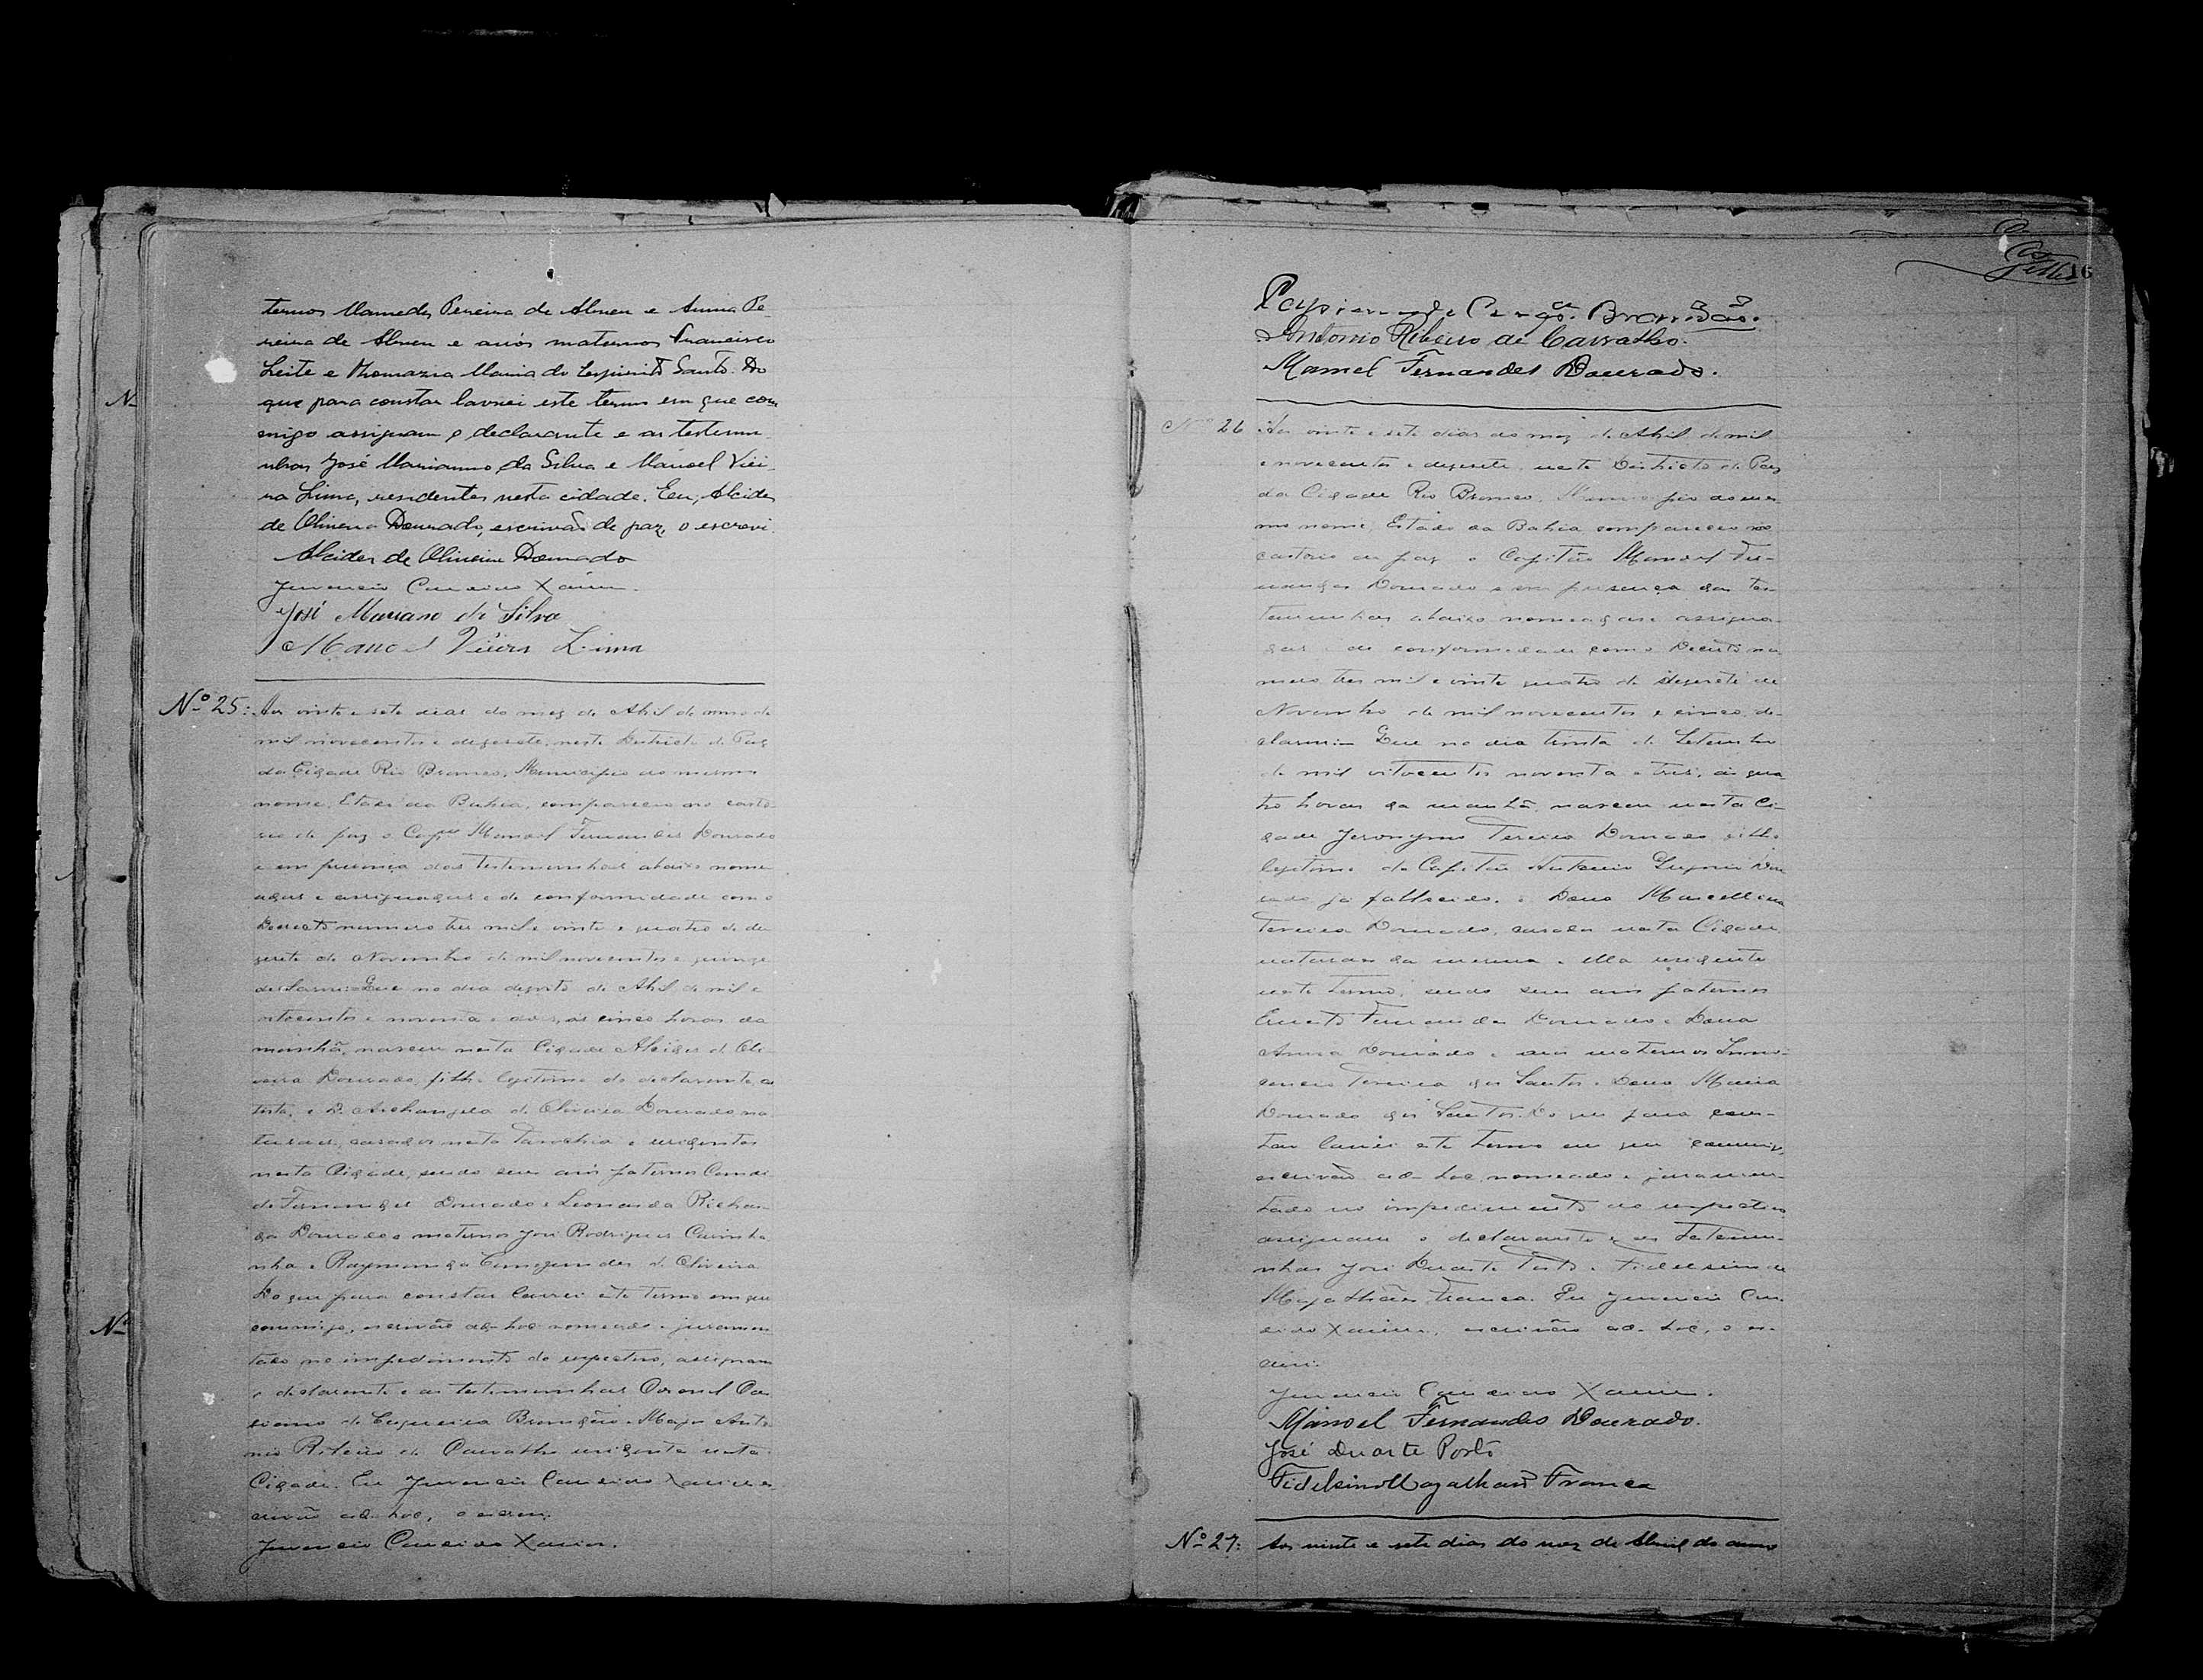 ternos Mamedes Pereira de Abreu e Anna Pe-
reira de Abreu e avós maternos Francisco
Leite e Thomazia Maria do Espirito Santo. Do
que para constar lavrei este termo em que com
migo assignam o declarante e as testemu-
nhas José Marianno da Silva e Manoel Viei-
ra Lima, residentes nesta cidade. Eu, Alcides
de Oliveira Dourado, escrivão de paz, o escrevi.
Alcides de Oliveira Dourado
Juvencio Xavier.
José Mariano da Silva
Manoel Vieira Lima
Nº 25: Aos vinte e sete dias do mez de Abril do anno de
mil novecentos e dezesete, neste Districto de Paz
da Cidade Rio Branco, Municipio do mesmo
nome, Estado da Bahia, compareceu no carto-
rio de paz o Capm Manoel Fernandes Dourado
e em presença das testemunhas abaixo nome
adas e assignadas e de conformidade com o
Decreto numero tres mil e vinte e quatro de de
zesete de Novembro de mil novecentos e quinze
declarou: Que no dia dezoito de Abril de mil e
oitocentos e noventa e dois, as cinco horas da
manhã, nasceu nesta Cidade Alcides de Oli-
veira Dourado, filho legitimo do declarante,
e D. Archangela de Oliveira Dourado na
turaes, casados nesta Parochia e residentes
nesta Cidade, sendo seus avós paternos Candi-
do Fernandes Dourado e Leonarda
Dourado e maternos José Rodrigues
e Raymunda de Oliveira
Do que para constar lavrei este termo em que
commigo, escrivão ad-hoc nomeado e juramen
tado no impedimento do respectivo, assignam
o declarante e as testemunhas Coronel
de Cerqueira Brandão e Major Anto
nio Ribeiro de Carvalho residente nesta
Cidade. Eu Juvencio Xavier es
crivão ad-hoc, o escrevi.
Juvencio Xavier.
16
Brandão.
Antonio Ribeiro de Carvalho.
Manoel Fernandes Dourado.
Nº 26 Aos vinte e sete dias do mez de Abril de mil
e novecentos e dezesete, neste Districto de Paz
da Cidade Rio Branco, Municipio do mes-
mo nome, Estado da Bahia compareceu no
cartorio de paz o Capitão Manoel Fer-
nandes Dourado e em presença das tes-
temunhas abaixo nomeadas e assigna-
das e de conformidade com o Decreto nu
mero tres mil e vinte quatro de dezesete de
Novembro de mil novecentos e cinco, de-
clarou: Que no dia trinta de Setembro
de mil oitocentos noventa e tres, ás qua
tro horas da manhã, nasceu nesta Ci-
dade Jeronymo Pereira Dourado filho
legitimo do Capitão Antonio Dou
rado já fallecido, e Dona Marcellina
Pereira Dourado, casados nesta Cidade,
naturaes da mesma e ella residente
neste termo, sendo seus avós paternos
Ernesto Fernandes Dourado e Dona
Anna Dourado e avós maternos Inno-
cencio Pereira dos Santos e Dona Maria
Dourado dos Santos. Do que para cons-
tar lavrei este termo em que commigo,
escrivão ad-hoc, nomeado e juramen-
tado no impedimento do respectivo
assignam o declarante e as testemu-
nhas José Duarte Porto e Fidelsino de
Magalhães Franca. Eu Juvencio
Xavier, escrivão ad-hoc, o es-
crevi.
Juvencio Xavier.
Manoel Fernandes Dourado.
José Duarte Porto
Fidelsino Magalhães Franca
Nº 27: Aos vinte e sete dias do mez de Abril do anno